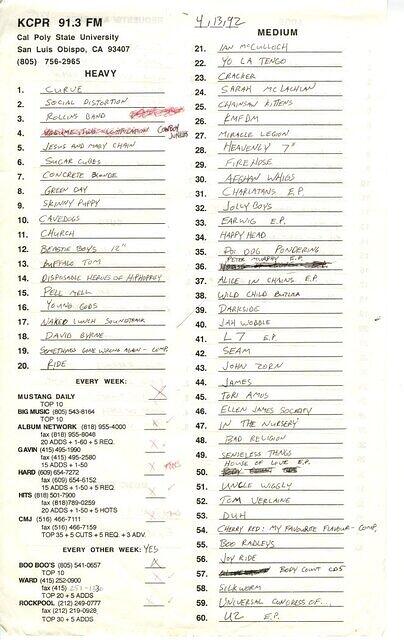 KCPR 91.3 FM
Cal Poly State University
San Luis Obispo, CA 93407
(805) 756-2965
HEAVY
1. CURVE
2. SOCIAL DISTORTION
3. ROLLINS BAND
4. COWBOY JUNKIES
5. JESUS AND MARY CHAIN
6. SUGAR CUBES
7. CONCRETE BLONDE
8. GREEN DAY
9. SKINNY PUPPY
10. CAVEDOGS
11. CHURCH
12. BEASTIE BOYS 12"
13. BUFFALO TOM
14. DISPOSABLE HEROES OF HIPHOPRISY
15. PELL MELL
16. YOUNG GODS
17. NAKED LUNCH SOUNDTRACK
18. DAVID BYRNE
19. SOMETHINGS GONE WRONG AGAIN - COMP.
20. RIDE
EVERY WEEK:
MUSTANG DAILY
TOP 10
BIG MUSIC (805) 543-8164
TOP 10
ALBUM NETWORK (818) 955-4000
fax (818) 955-8048
20 ADDS + 1-60 + 5 REQ.
GAVIN (415) 495-1990
fax (415) 495-2580
15 ADDS + 1-50
HARD (609) 654-7272
fax (609) 654-6152
15 ADDS + 1-50 + 5 REQ
HITS (818) 501-7900
fax (818)789-0259
20 ADDS + 1-50 + 5 HOTS
CMJ (516) 466-7111
fax (516) 466-7159
TOP 35 + 5 CUTS + 5 REQ. + 3 ADV.
EVERY OTHER WEEK: YES
BOO BOO'S (805) 541-0657
TOP 10
WARD (415) 252-0900
fax (415)
TOP 20 + 5 ADDS
ROCKPOOL (212) 249-0777
fax (212) 219-0928
TOP 30 + 5 ADDS
4,13,92
MEDIUM
21. IAN McCULLOCH
22. YO LA TENGO
23. CRACKER
24. SARAH McLACHLAN
25. CHAINSAW KITTENS
26. KMFDM
27. MIRACLE LEGION
28. HEAVENLY 7"
29. FIREHOSE
30. AFGHAN WHIGS
31. CHARLATANS E.P.
32. JOLLY BOYS
33. EARWIG E.P.
34. HAPPYHEAD
35. POI DOG PONDERING
36. PETER MURPHY E.P.
37. ALICE IN CHAINS E.P.
38. WILD CHILD BUTLER
39. DARKSIDE
40. JAH WOBBLE
41. L7 E.P.
42. SEAM
43. JOHN ZORN
44. JAMES
45. TORI AMOS
46. ELLEN JAMES SOCIETY
47. IN THE NURSERY
48. BAD RELIGION
49. SENSELESS THINGS
50. HOUSE OF LOVE E.P.
51. UNCLE WIGGLY
52. TOM VERLAINE
53. DUH
54. CHERRY RED: MY FAVOURITE FLAVOUR - COMP.
55. BOO RADLEYS
56. JOY RIDE
57. BODY COUNT CD5
58. SILKWORM
59. UNIVERSAL CONGRESS OF...
60. U2 E.P.